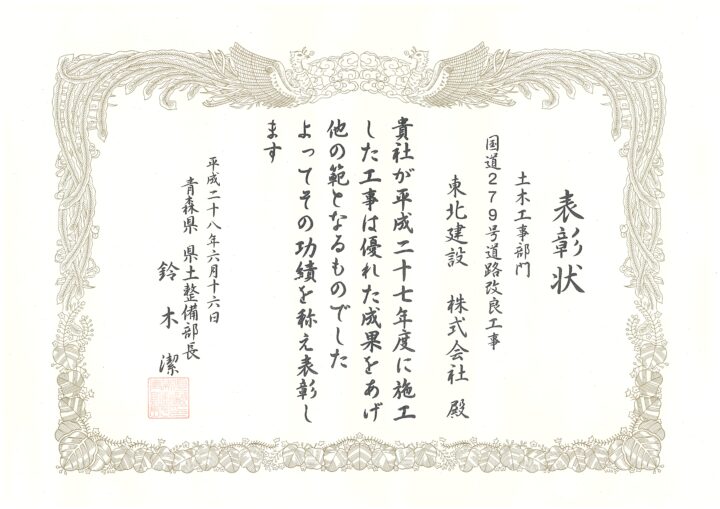 表彰状
土木工事部門
国道279号道路改良工事
東北建設 株式会社 殿
貴社が平成二十七年度に施工
した工事は優れた成果をあげ
他の範となるものでした
よってその功績を称え表彰し
ます
平成二十八年六月十六日
青森県 県土整備部長
鈴木 潔